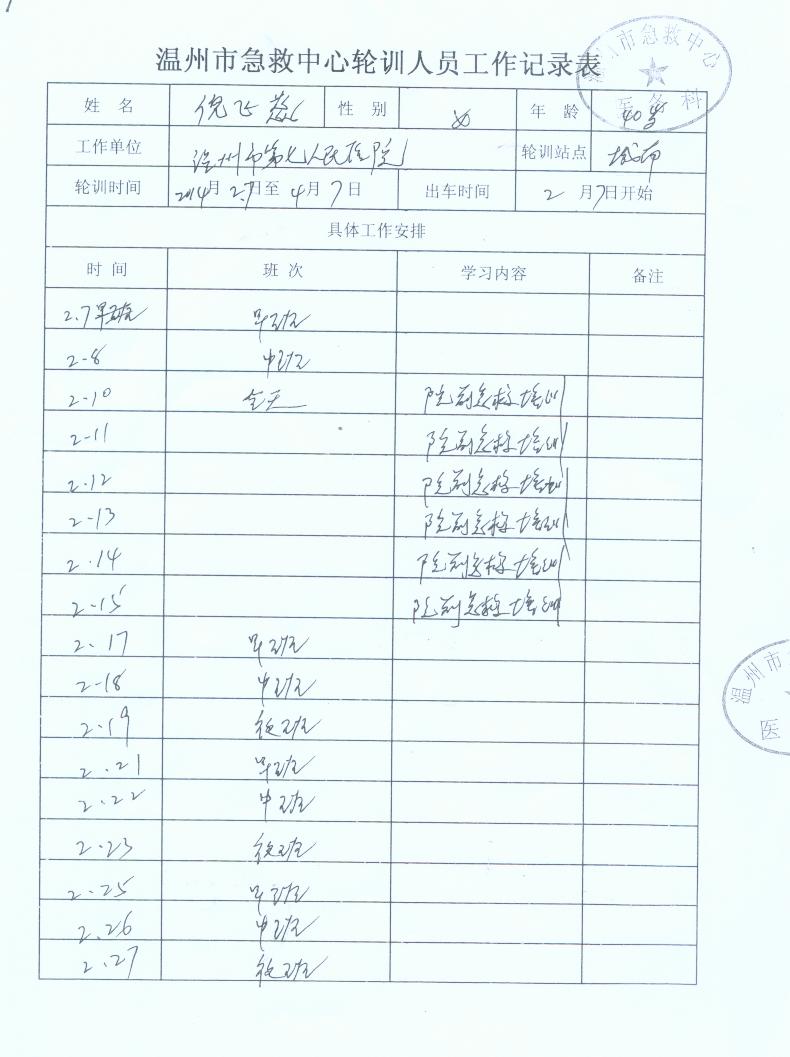 温州市急救中心轮训人员工作记录表
温州市急救中心
医务科
姓 名 倪飞 性 别 女 年 龄 40岁
工作单位 温州市第七人民医院 轮训站点 城南
轮训时间 2014月2.7日至4月7日 出车时间 2月7日开始
具体工作安排
时 间 班 次 学习内容 备注
2.7 早班
2-8 中班
2-10 全天 院前急救培训
2-11 院前急救培训
2.12 院前急救培训
2-13 院前急救培训
2.14 院前急救培训
2-15 院前急救培训
2.17 早班
2-18 中班
2.19 夜班
2.21 早班
2.22 中班
2-23 夜班
2-25 早班
2.26 中班
2.27 夜班
温州市
医